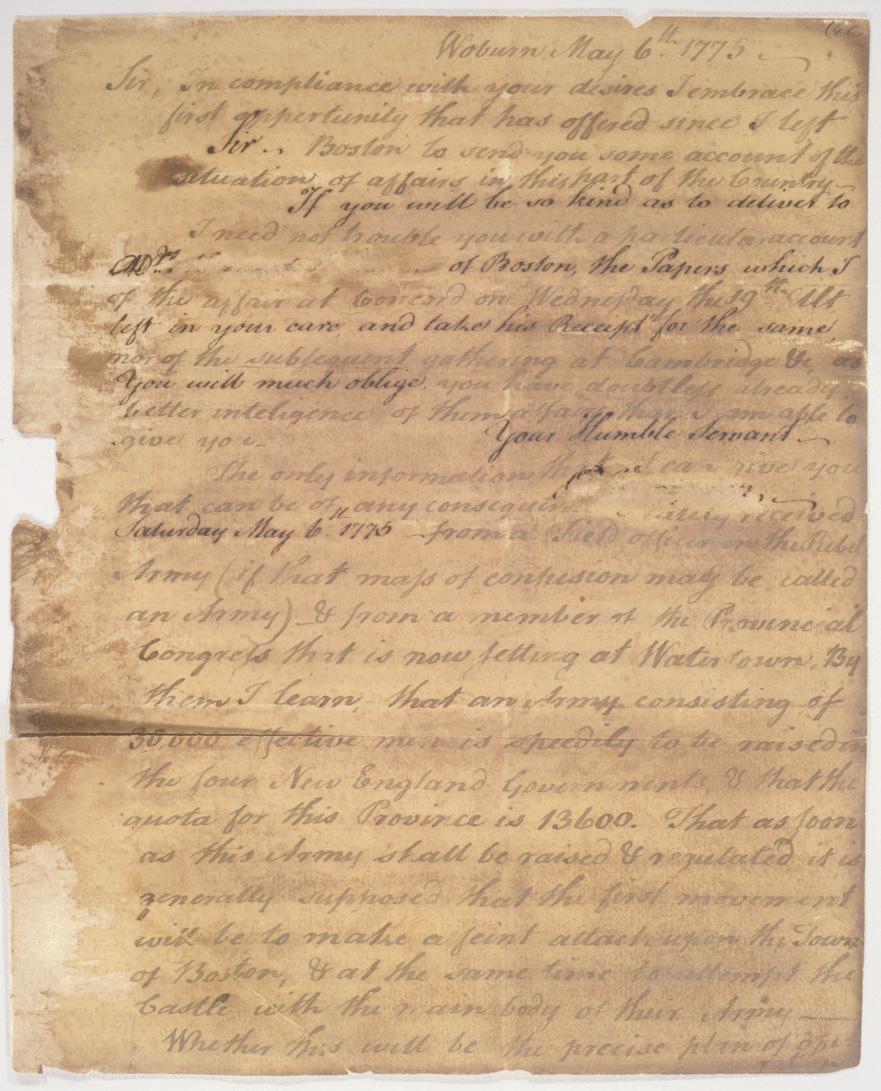 Woburn May 6th. 1775
Sir, In compliance with your desires I embrace this
first oppertunity that has offered since I left
Sir. Boston to send you some account of the
situation of affairs in this part of the Country
If you will be so kind as to deliver to
I need not trouble you with a particular account
of Boston, the Papers which I
of the affair at Concord on Wednesday the 19th Ult
left in your care, and take his Receipt for the same,
nor of the subsequent gathering at Cambridge &c, as
You will much oblige. you have doubtless already
better inteligence of them affairs than I am able to
give you
Your Humble Servant
The only information that I can give you
that can be of any received
Saturday May 6th. 1775 from a Field officer in the Rebel
Army (if that mass of confusion may be called
an Army) & from a member of the Provincial
Congress that is now setting at Watertown, By
them I learn, that an Army consisting of
30,000 effective men is speedily to be raised in
the four New England Governments, & that the
quota for this Province is 13600. That as soon
as this Army shall be raised & regulated it is
generally supposed that the first movement
will be to make a feint attack upon the Town
of Boston, & at the same time to attempt the
Castle with the main body of their Army
Whether this will be the precise plan of ope=